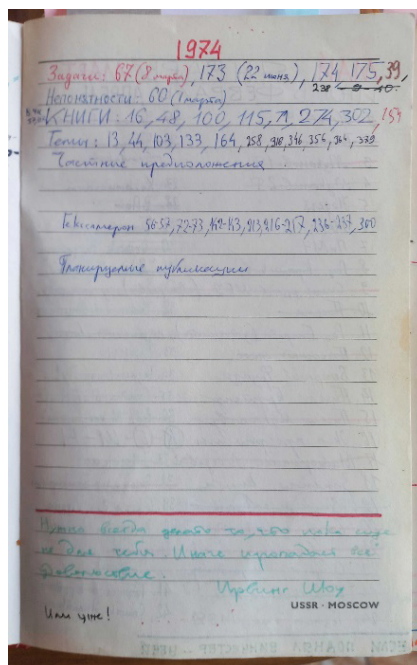 1974
Задачи: 67 (8 марта), 173 (22 июня), 174, 175, 39,
238
Непонятности: 60 (1 марта)
КНИГИ: 16, 48, 100, 115, 274, 302, 154
Темы: 13, 44, 103, 133, 164, 258, 346, 354, 364, 379
Частные предположения
56-57, 72-73, 142-143, 213, 216-217, 236-237, 300
Планируемые публикации
Нужно всегда делать то, что пока еще
не для тебя. Иначе пропадает всё
удовольствие.
Ирвинг Шоу
USSR · MOSCOW
Или уже!